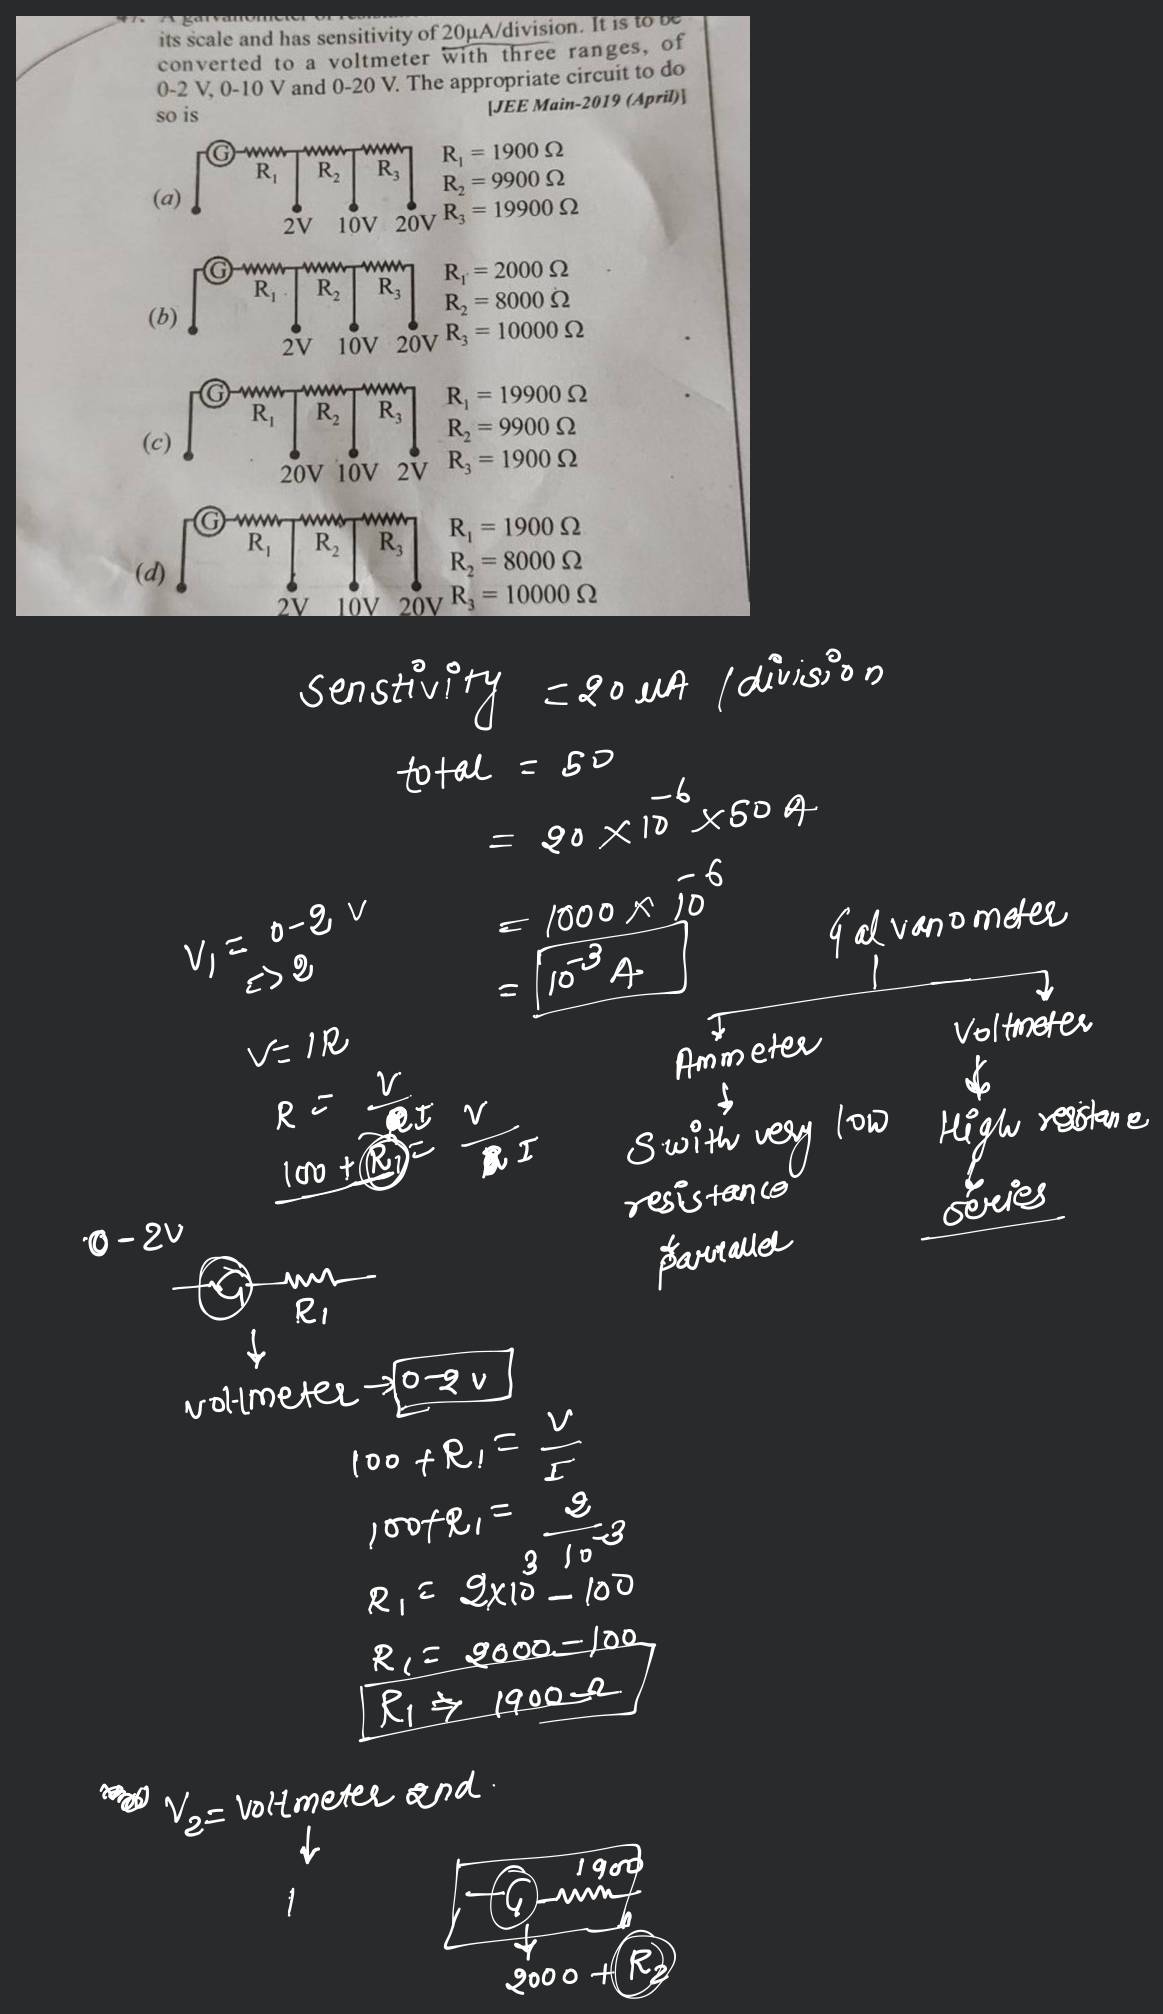 its scale and has sensitivity of 20μA/division. It is to be
converted to a voltmeter with three ranges, of
0-2 V, 0-10 V and 0-20 V. The appropriate circuit to do
so is [JEE Main-2019 (April)]
(a) G R₁ R₂ R₃ 2V 10V 20V
R₁ = 1900 Ω
R₂ = 9900 Ω
R₃ = 19900 Ω
(b) G R₁ R₂ R₃ 2V 10V 20V
R₁ = 2000 Ω
R₂ = 8000 Ω
R₃ = 10000 Ω
(c) G R₁ R₂ R₃ 20V 10V 2V
R₁ = 19900 Ω
R₂ = 9900 Ω
R₃ = 1900 Ω
(d) G R₁ R₂ R₃ 2V 10V 20V
R₁ = 1900 Ω
R₂ = 8000 Ω
R₃ = 10000 Ω
Senstivity = 20 μA / division
total = 50
= 20 × 10⁻⁶ × 50 A
= 1000 × 10⁻⁶
= 10⁻³ A
V₁ = 0-2 V
=> 2
V = IR
R = V/I
100 + R₁ = V/I
Galvanometer
Ammeter
S with very low
resistance
Voltmeter
High resistane
series
0-2V
G R₁
voltmeter → 0-2 V
100 + R₁ = V/I
100+R₁ = 2/10⁻³
R₁ = 2×10³ - 100
R₁ = 2000 - 100
R₁ ⇒ 1900 Ω
V₂ = Voltmeter 2nd.
G 1900
2000 + R₂